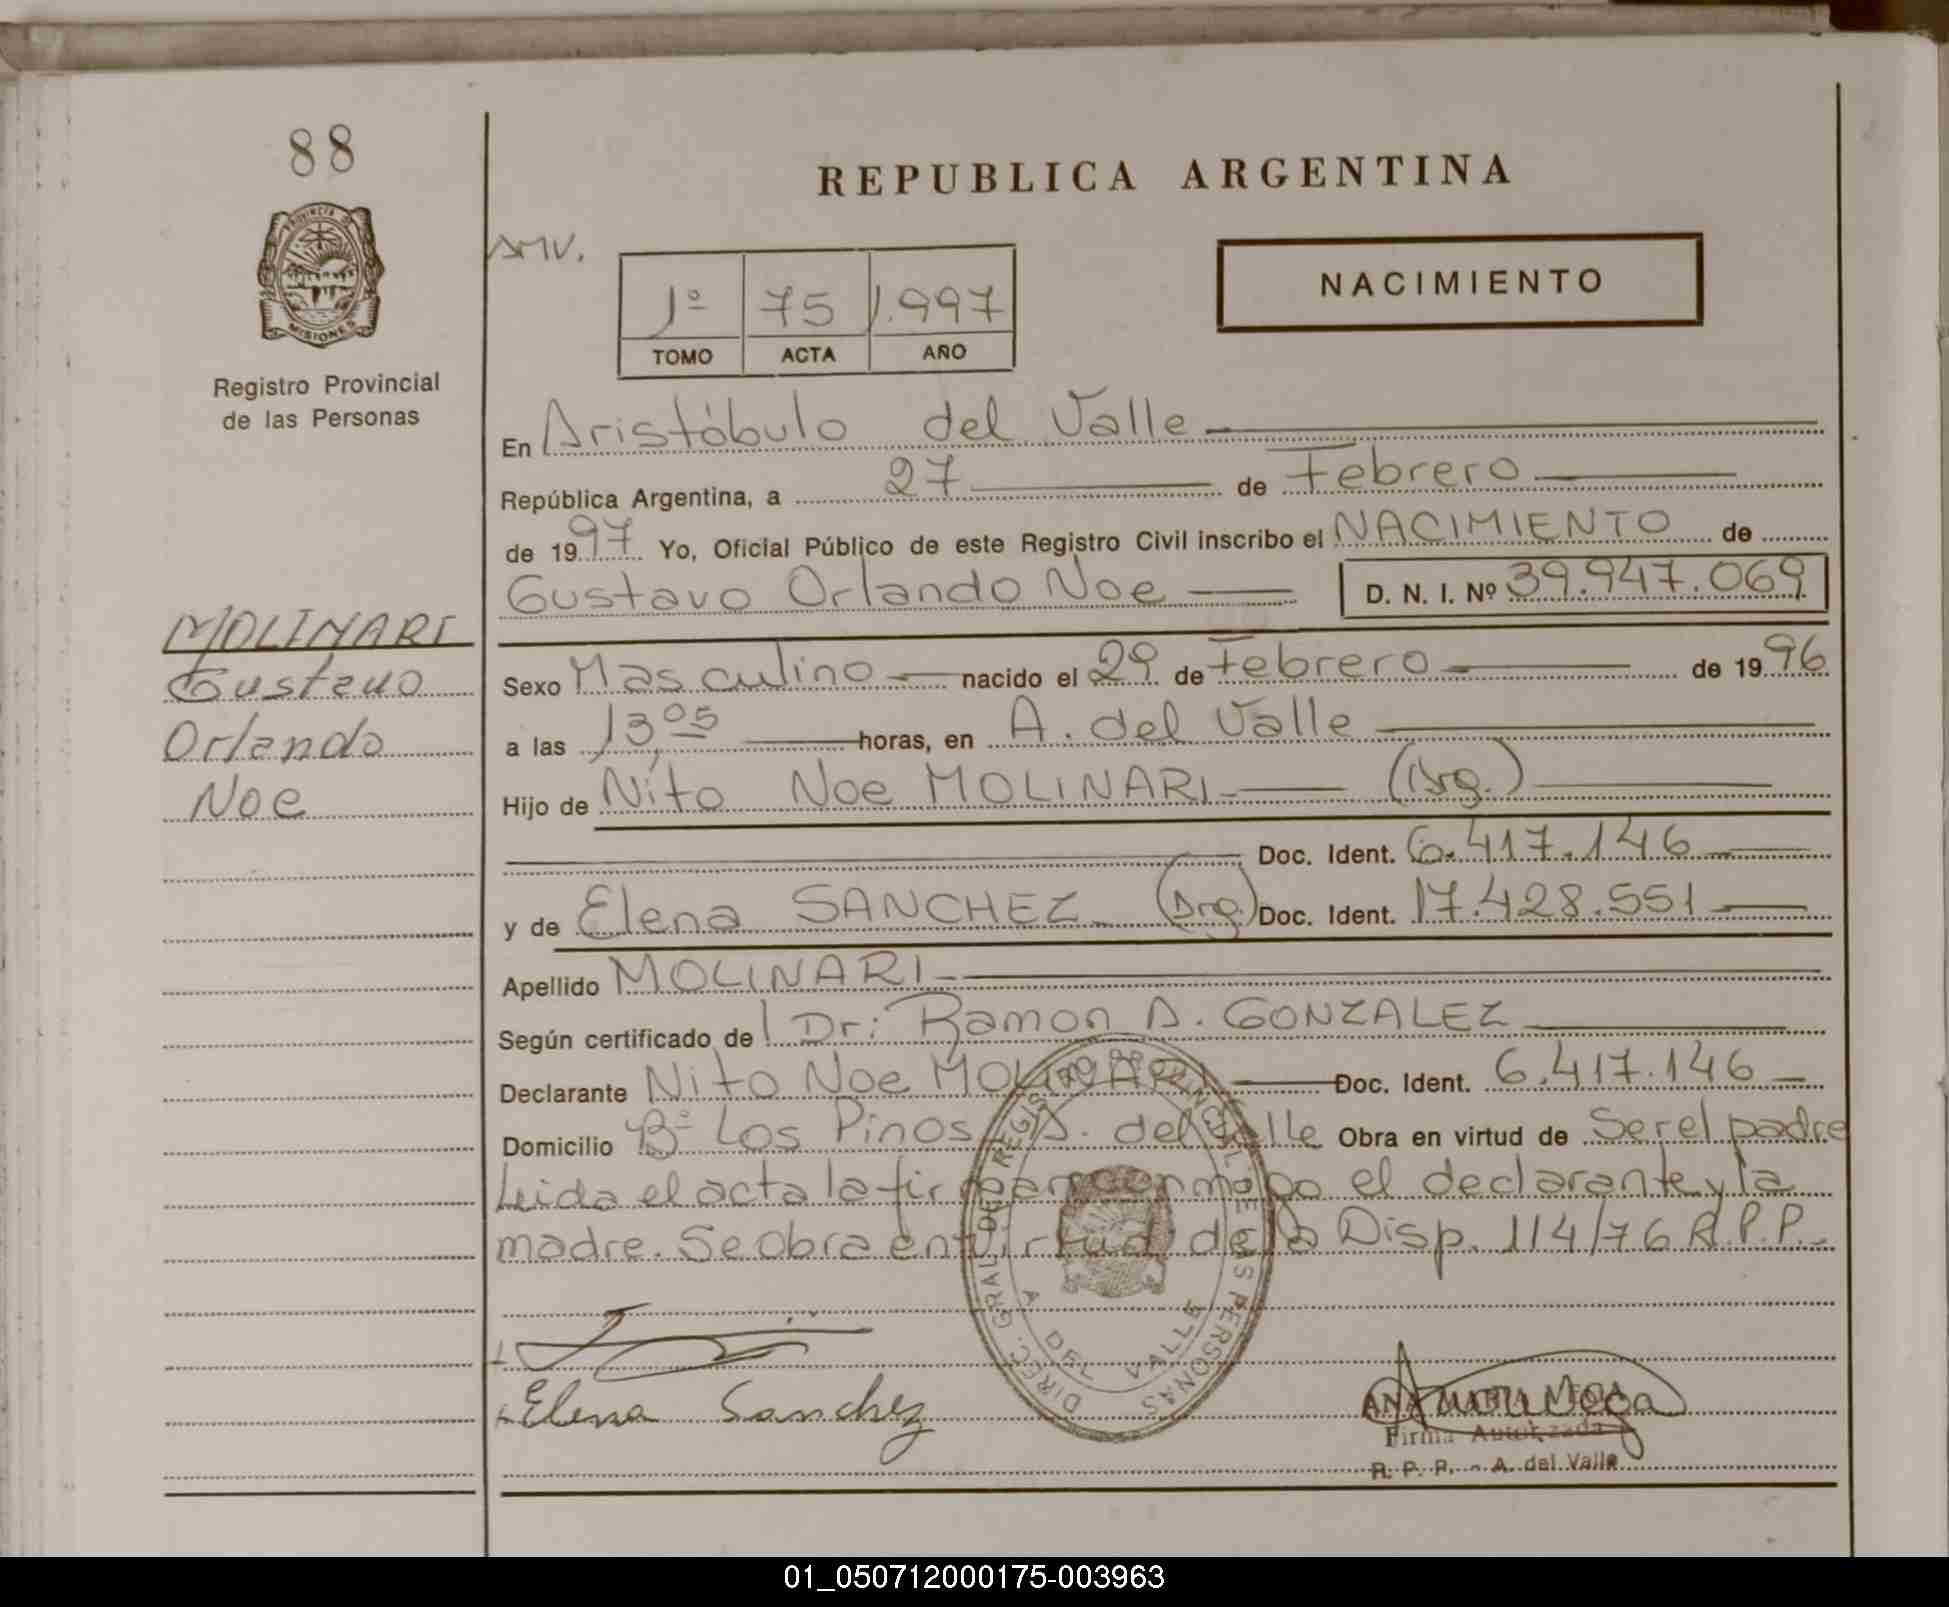 88
PROVINCIA DE
MISIONES
Registro Provincial
de las Personas
MOLINARI
Gustavo
Orlando
Noe
REPUBLICA ARGENTINA
AMV.
1º 75 1.997
TOMO ACTA AÑO
NACIMIENTO
En Aristóbulo del Valle
República Argentina, a 27 de Febrero
de 1997 Yo, Oficial Público de este Registro Civil inscribo el NACIMIENTO de
Gustavo Orlando Noe D. N. I. Nº 39.947.069
Sexo Masculino nacido el 29 de Febrero de 1996
a las 13,05 horas, en A. del Valle
Hijo de Nito Noe MOLINARI (Arg.)
Doc. Ident. 6.417.146
y de Elena SANCHEZ (Arg.) Doc. Ident. 17.428.551
Apellido MOLINARI
Según certificado de Dr: Ramon A. GONZALEZ
Declarante Nito Noe MOLINARI Doc. Ident. 6.417.146
Domicilio Bº Los Pinos A. del Valle Obra en virtud de ser el padre
Leida el acta la firman conmigo el declarante y la
madre. Se obra en virtud de la Disp. 114/76 R.P.P.
DIREC. GRAL. DE REGISTRO PROVINCIAL DE LAS PERSONAS
A. DEL VALLE
Elena Sanchez
Firma Autorizada
R. P. P. - A. del Valle
01_050712000175-003963